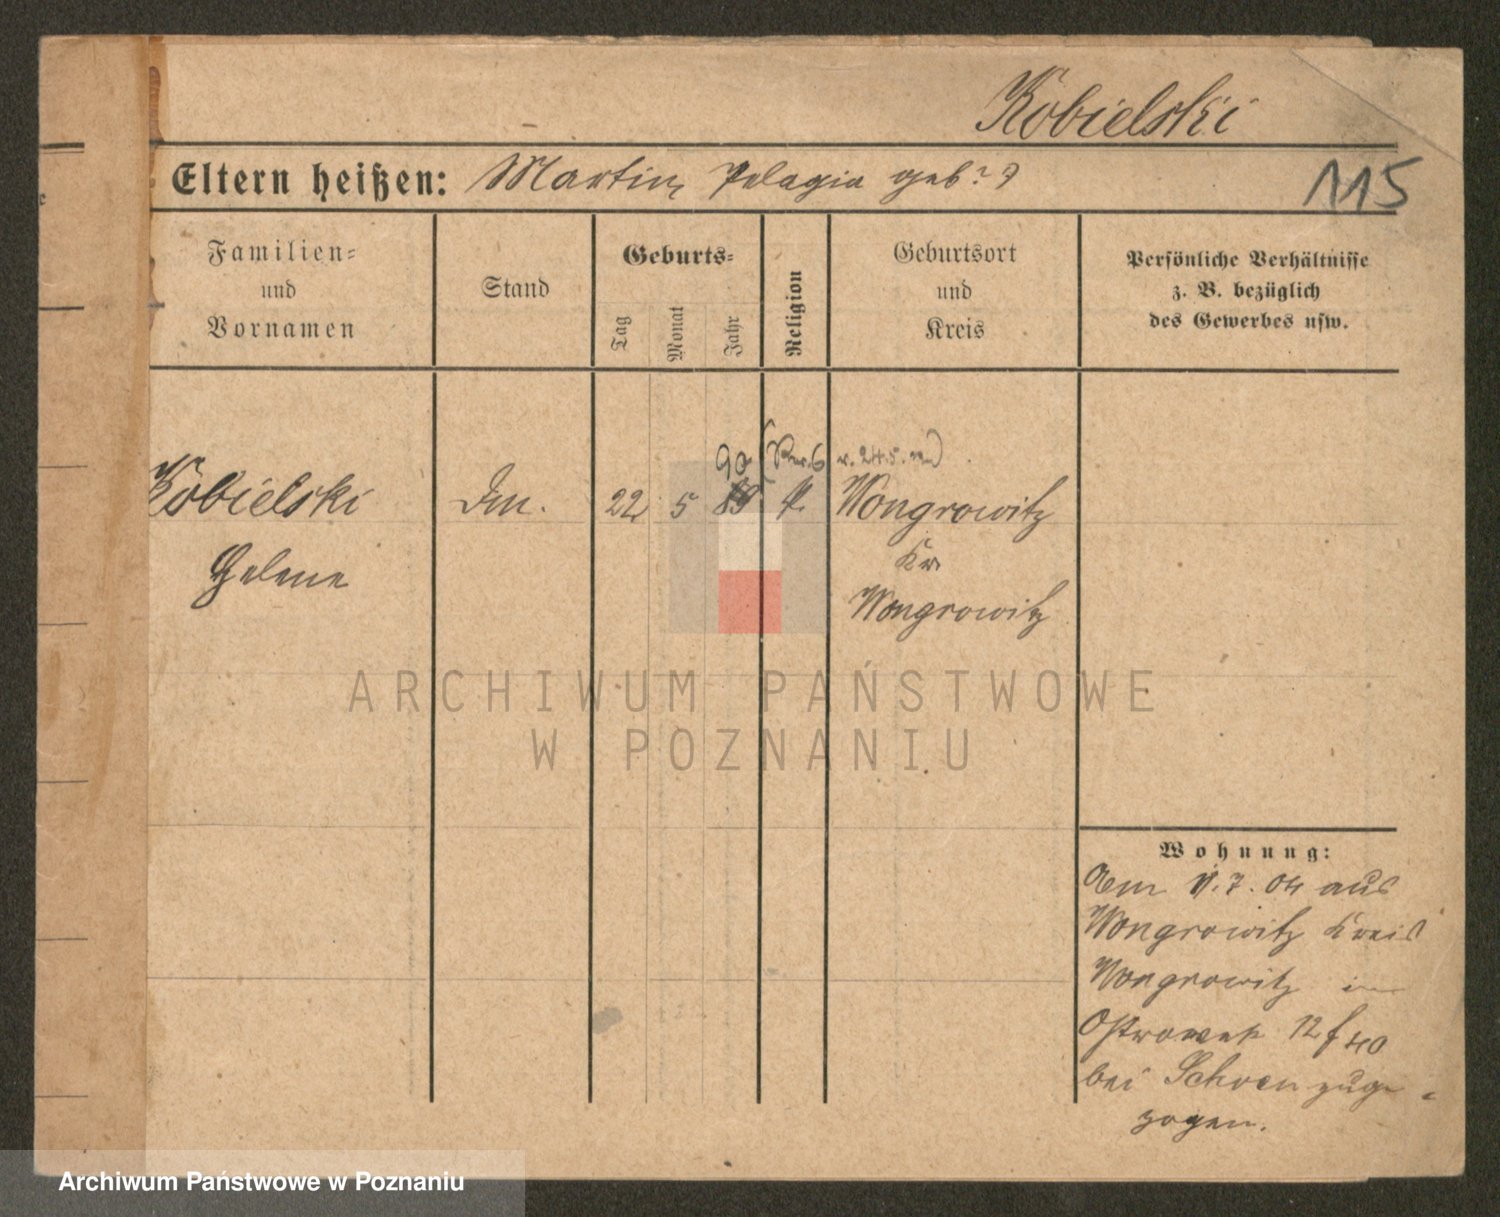 Kobielski
Eltern heißen: Martin, Pelagia geb. ?
115
Familien=
und
Vornamen
Stand
Geburts=
Tag
Monat
Jahr
Religion
Geburtsort
und
Kreis
Persönliche Verhältnisse
z. B. bezüglich
des Gewerbes usw.
90 v. 24.5.
Kobielski 22 5 89 Wongrowitz
Helene
Kr
Wongrowitz
ARCHIWUM PAŃSTWOWE
W POZNANIU
Wohnung:
Am 1.7.04 aus
Wongrowitz Kreis
Wongrowitz in
Ostrowek 12
bei Schoen zuge=
zogen.
Archiwum Państwowe w Poznaniu